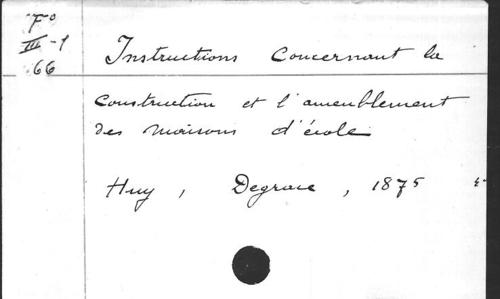 Fo
III-1
66
Instructions concernant la
construction et l'ameublement
des maisons d'école
Huy, Degrace, 1875